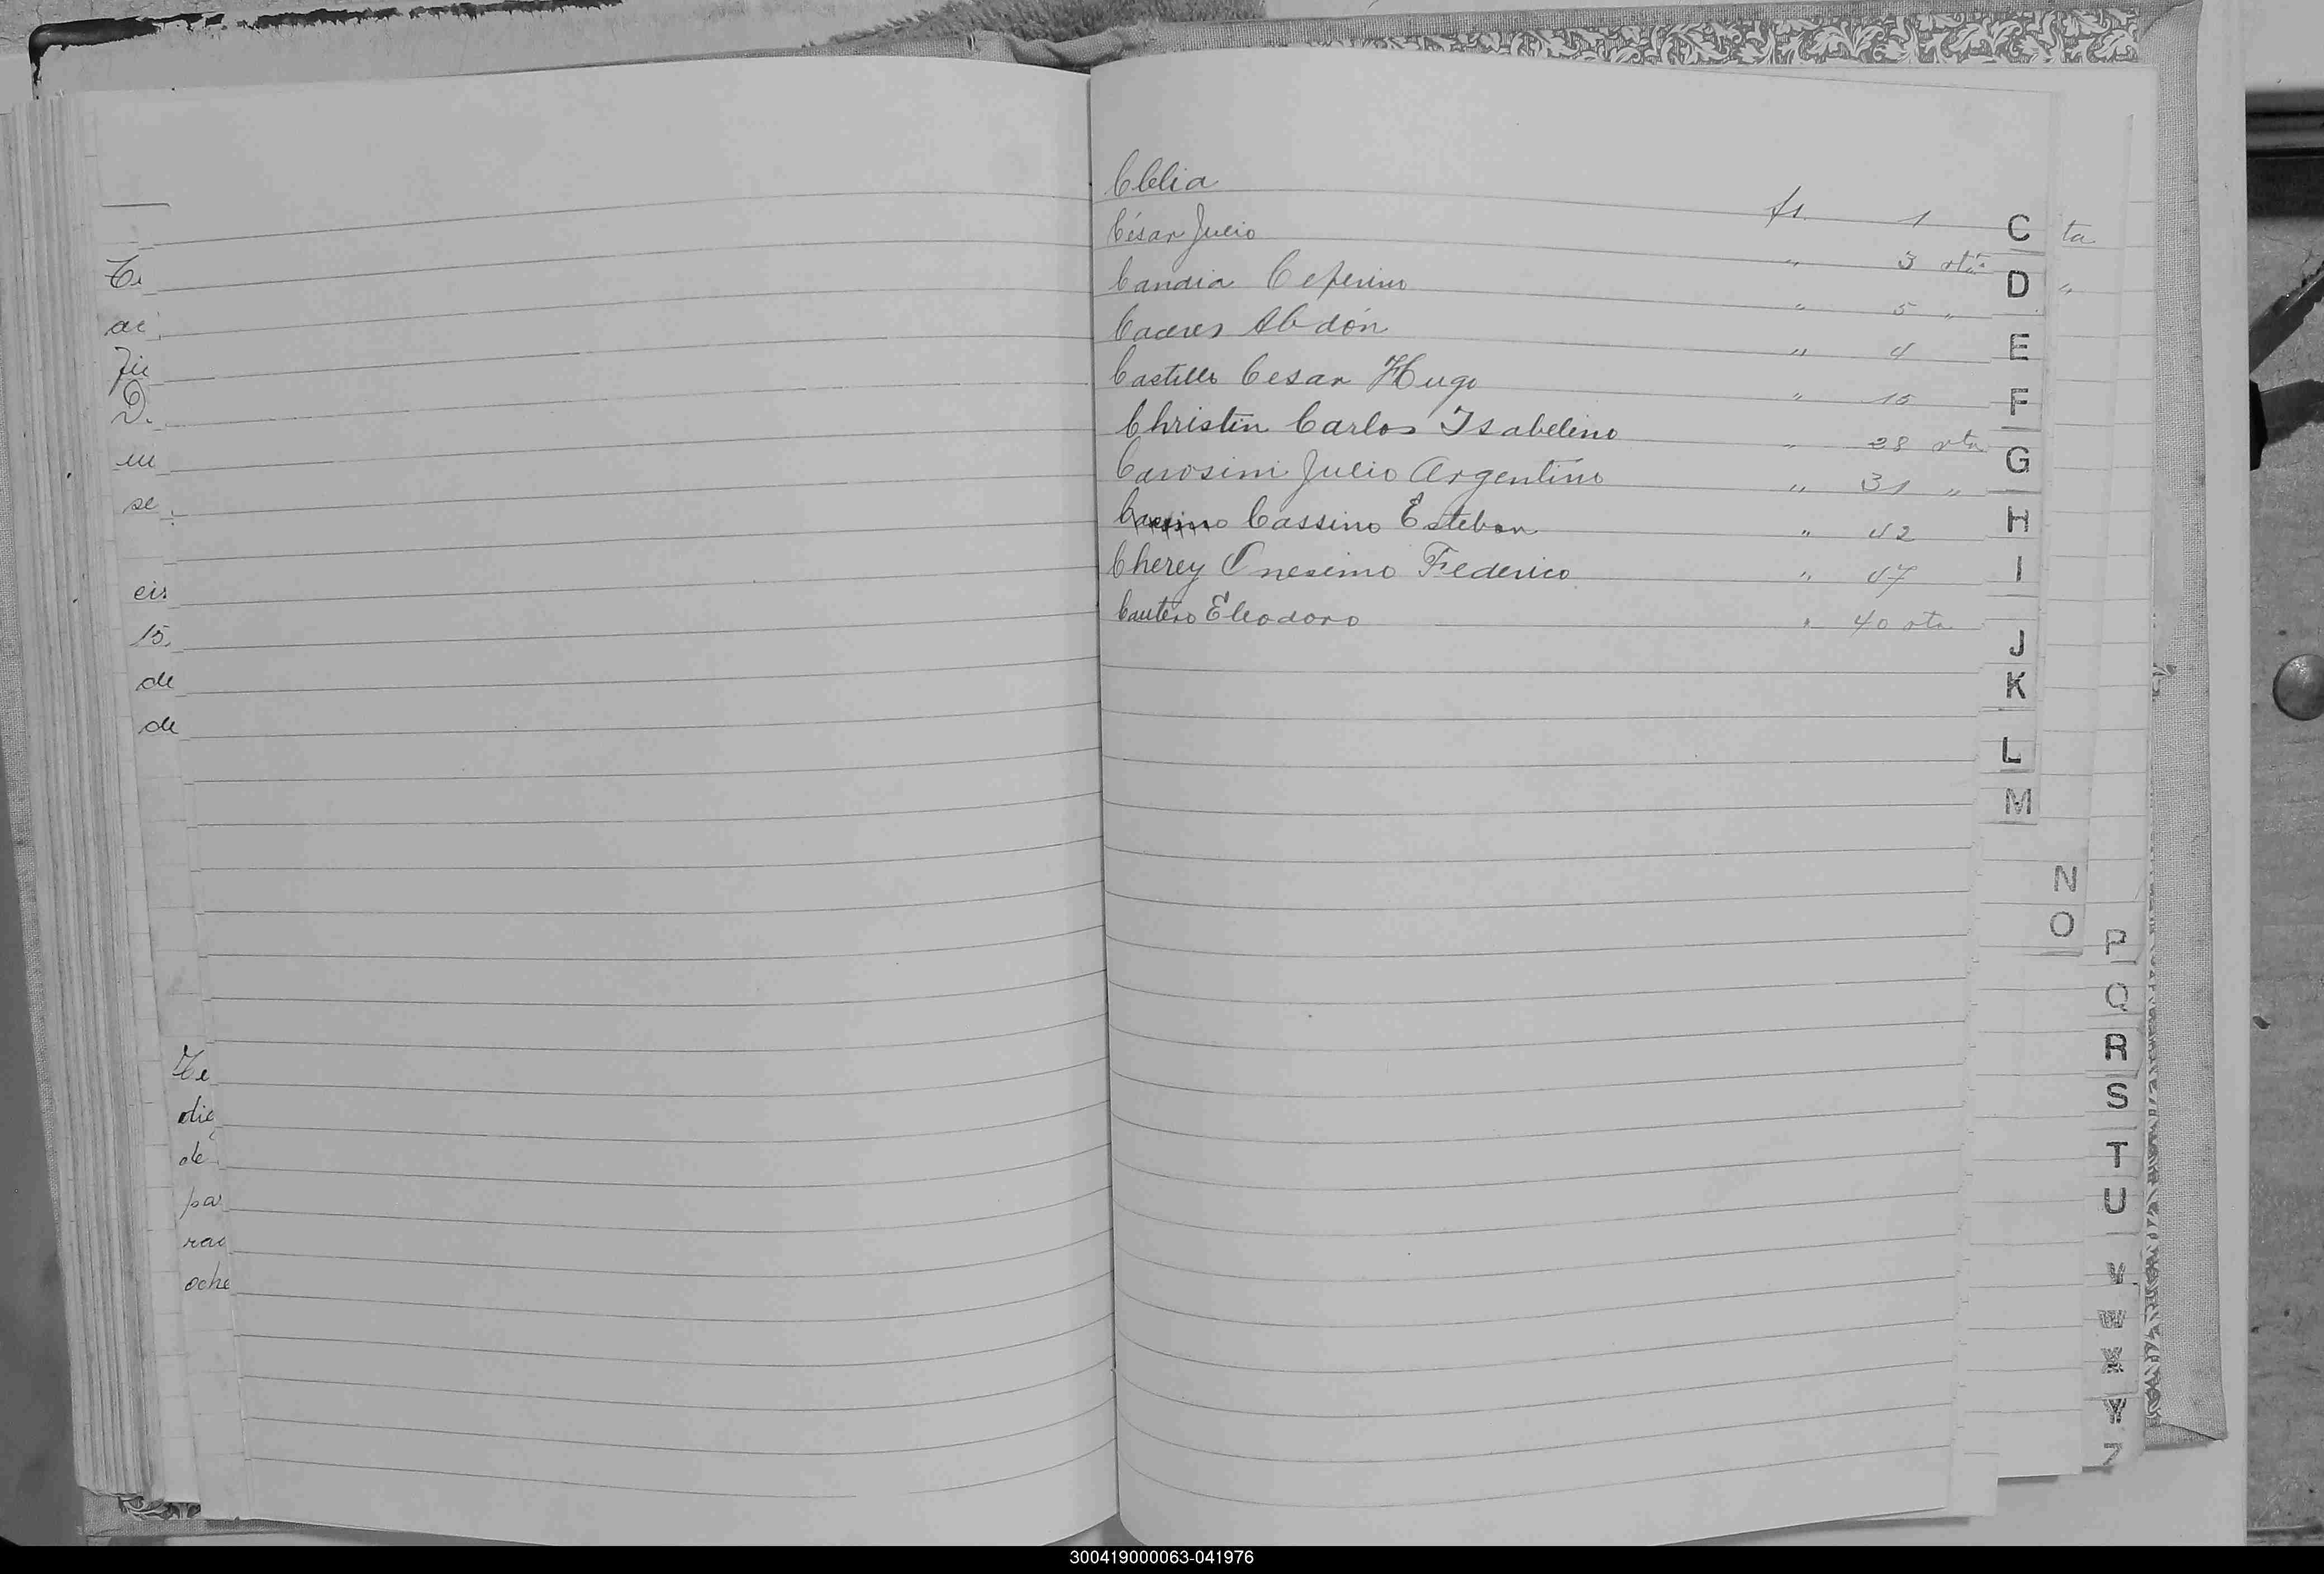 Te
ac
D.
se
eis
15.
de
de
Te
die
de
pa
rac
oche
Clelia fs. 1
César Julio " 3 vta
Candia Ceferino " 5 "
Caceres Abdón " 4
Castillo Cesar Hugo " 15
Christin Carlos Isabelino " 28 vta
Carosini Julio Argentino " 31 "
Cassino Cassino Esteban " 42
Cherey Onesimo Federico " 47
Cautero Eleodoro " 40 vta
ta
"
C
D
E
F
G
H
I
J
K
L
M
N
O
P
Q
R
S
T
U
V
W
X
Y
Z
300419000063-041976